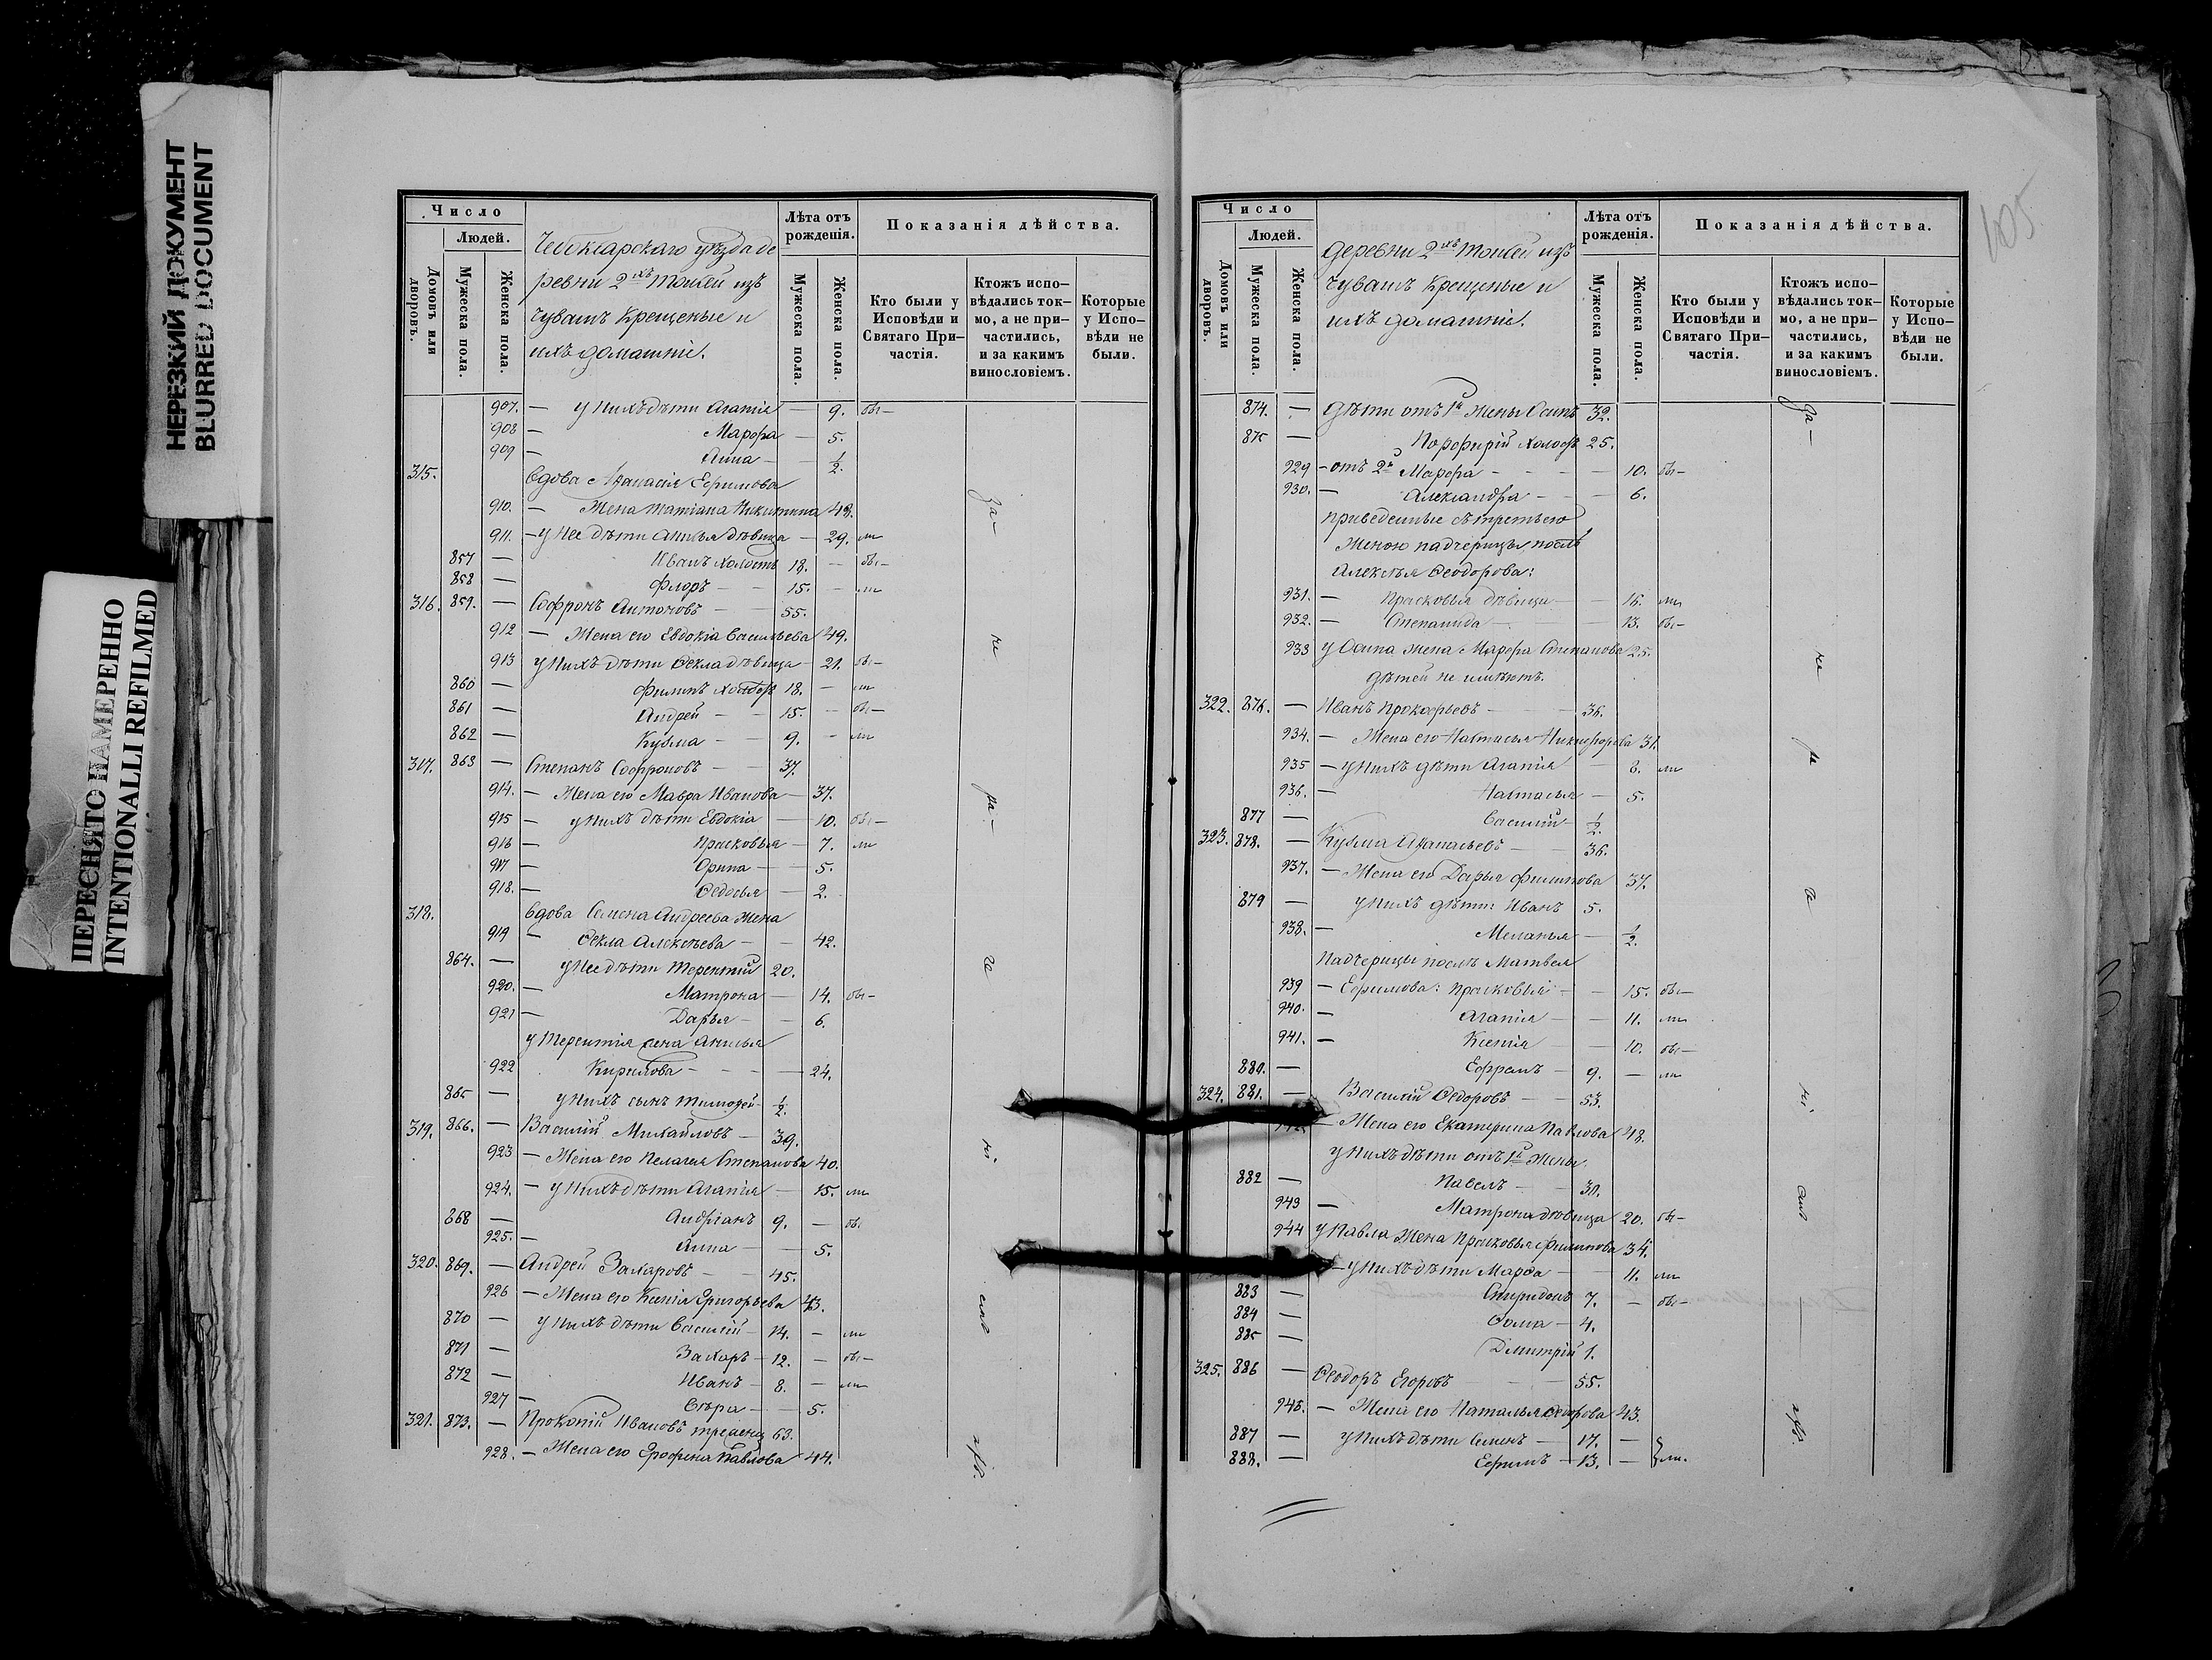 НЕРЕЗКИЙ ДОКУМЕНТ
BLURRED DOCUMENT
ПЕРЕСНЯТО НАМЕРЕННО
INTENTIONALLI REFILMED
Число
Людей.
Домовъ или дворовъ.
Мужеска пола.
Женска пола.
Чебоксарскаго уѣзда де
ревни 2ихъ Тоисей изъ
Чувашъ Крещеные и
ихъ домашніе.
Лѣта отъ рожденія.
Мужеска пола.
Женска пола.
Показанія дѣйства.
Кто были у Исповѣди и Святаго Причастія.
Ктожъ исповѣдались токмо, а не причастились, и за какимъ винословіемъ.
Которые у Исповѣди не были.
907. — у нихъ дѣти Агапія — 9. обѣ —
908 — Марфа — 5.
909 — Анна — ½.
315. Вдова Афанасія Ефимова
910. — Жена Татіана Никитина 49.
911. — у нее дѣти Анисья дѣвица — 29.
857 — Иванъ холостъ 18. —
858 — Флоръ — 15. —
316. 859. — Софронъ Антоновъ — 55.
912 — Жена его Евдокіа Васильева 49.
913 у нихъ дѣти Ѳекла дѣвица — 21.
860 — Филипъ холостъ 18. —
861 — Андрей — 15. —
862 — Кузма — 9. —
317. 863 — Степанъ Софроновъ — 37.
914. — Жена его Мавра Иванова — 37.
915 — у нихъ дѣти Евдокіа — 10.
916 — Прасковья — 7.
917 — Орина — 5.
918. — Ѳедосья — 2.
318. Вдова Семена Андреева жена
919 — Ѳекла Алексѣева — 42.
864. — у нее дѣти Терентій 20.
920. — Матрона — 14.
921 — Дарья — 6.
у Терентія жена Анисья
922 Кирилова — 24.
865 — у нихъ сынъ Тимофей — ½.
319. 866. — Василій Михайловъ — 39.
923 — Жена его Пелагея Степанова 40.
924. — у нихъ дѣти Агапія — 15.
868 — Андріанъ 9. —
925. — Анна — 5.
320. 869. — Андрей Захаровъ — 45.
926 — Жена его Ксенія Григорьева 43.
870 — у нихъ дѣти Василій — 14. —
871 — Захаръ — 12. —
872 — Иванъ — 8. —
927 — Вѣра — 5.
321. 873. — Прокопій Ивановъ 63.
928. — Жена его Ерофина Павлова 44.
105
Число
Людей.
Домовъ или дворовъ.
Мужеска пола.
Женска пола.
деревни 2ихъ Тоисей изъ
Чувашъ Крещеные и
ихъ домашніе.
Лѣта отъ рожденія.
Мужеска пола.
Женска пола.
Показанія дѣйства.
Кто были у Исповѣди и Святаго Причастія.
Ктожъ исповѣдались токмо, а не причастились, и за какимъ винословіемъ.
Которые у Исповѣди не были.
874. — Дѣти отъ 1й жены Осипъ 32.
875 — Порфирій холостъ 25.
929 — отъ 2й Марфа — 10.
930. — Александра — 6.
приведенные съ третьею
Женою падчерицы послѣ
Алексѣя Ѳеодорова:
931. — Прасковья дѣвица — 16.
932. — Степанида — 13.
933 у Осипа жена Марфа Степанова 25.
дѣтей не имѣютъ.
322. 876. — Иванъ Прокофьевъ — 36.
934. — Жена его Настасья Никифорова 31.
935 — у нихъ дѣти Агапія — 8.
936. — Настасья — 5.
877 — Василій — ½.
323. 878. — Кузма Афанасьевъ — 36.
937. — Жена его Дарья Филипова 37.
879 — у нихъ дѣти Иванъ 5.
938. — Меланья — ½.
Падчерицы послѣ Матвея
939 — Ефимова: Прасковья — 15.
940. — Агапія — 11.
941. — Ксенія — 10.
880. — Ефремъ — 9. —
324. 881. — Василій Ѳедоровъ — 53.
942. — Жена его Екатерина Павлова 48.
у нихъ дѣти отъ 1й жены
882 — Павелъ — 30.
943 — Матрона дѣвица 20.
944 у Павла жена Прасковья Филипова 34.
— у нихъ дѣти Марѳа — 11.
883 — Спиридонъ 7. —
884 — Ѳома — 4.
885 — Дмитрій 1.
325. 886 — Ѳеодоръ Егоровъ — 55.
946. — Жена его Наталья 43.
887 — у нихъ дѣти Семенъ — 17. —
888. — Ефимъ — 13. —